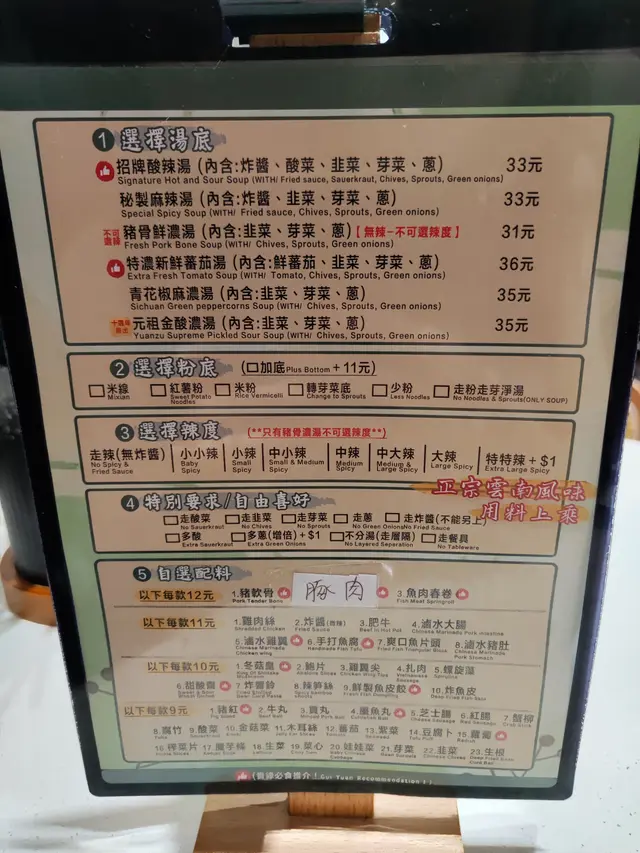 1 選擇湯底
招牌酸辣湯 (內含:炸醬、酸菜、韭菜、芽菜、蔥) 33元
Signature Hot and Sour Soup (WITH/ Fried sauce, Sauerkraut, Chives, Sprouts, Green onions)
秘製麻辣湯 (內含:炸醬、韭菜、芽菜、蔥) 33元
Special Spicy Soup (WITH/ Fried sauce, Chives, Sprouts, Green onions)
不可選辣 豬骨鮮濃湯 (內含:韭菜、芽菜、蔥)【無辣-不可選辣度】 31元
Fresh Pork Bone Soup (WITH/ Chives, Sprouts, Green onions)
特濃新鮮蕃茄湯 (內含:鮮蕃茄、韭菜、芽菜、蔥) 36元
Extra Fresh Tomato Soup (WITH/ Tomato, Chives, Sprouts, Green onions)
青花椒麻濃湯 (內含:韭菜、芽菜、蔥) 35元
Sichuan Green peppercorns Soup (WITH/ Chives, Sprouts, Green onions)
元祖金酸濃湯 (內含:韭菜、芽菜、蔥) 35元
Yuanzu Supreme Pickled Sour Soup (WITH/ Chives, Sprouts, Green onions)
2 選擇粉底 (口加底Plus Bottom + 11元)
米線 紅薯粉 米粉 轉芽菜底 少粉 走粉走芽淨湯
Mixian Sweet Potato Noodles Rice Vermicelli Change to Sprouts Less Noodles No Noodles & Sprouts(ONLY SOUP)
3 選擇辣度 (**只有豬骨濃湯不可選辣度**)
走辣(無炸醬) 小小辣 小辣 中小辣 中辣 中大辣 大辣 特特辣 + $1
No Spicy & Fried Sauce Baby Spicy Small Spicy Small & Medium Spicy Medium Spicy Medium & Large Spicy Large Spicy Extra Large Spicy
正宗雲南風味
用料上乘
4 特別要求/自由喜好
走酸菜 走韭菜 走芽菜 走蔥 走炸醬(不能另上)
No Sauerkraut No Chives No Sprouts No Green Onions No Fried Sauce
多酸 多蔥(增倍) + $1 不分湯(走層隔) 走餐具
Extra Sauerkraut Extra Green Onions No Layered Separation No Tableware
5 自選配料
以下每款12元 1.豬軟骨 豚肉 3.魚肉春卷
Pork Tender Bone Fish Meat Springroll
以下每款11元 1.雞肉絲 2.炸醬(微辣) 3.肥牛 4.滷水大腸
Shredded Chicken Fried Sauce Beef in Hot Pot Chinese Marinade Pork Intestine
5.滷水雞翼 6.手打魚腐 7.爽口魚片頭 8.滷水豬肚
Chinese Marinade Chicken wing Handmade Fish Tofu Fried Fish Triangular Block Chinese Marinade Pork Stomach
以下每款10元 1.冬菇 2.鮑片 3.雞翼尖 4.扎肉 5.螺旋藻
Abalone Slices Chicken Wing Tips Vietnamese Sausage Spirulina
6.甜酸齋 7.炸醬 8.辣筍絲 9.鮮製魚皮餃 10.炸魚皮
Fresh Fish Dumpling Deep Fried Fish Skin
以下每款9元 1.豬紅 2.牛丸 3.貢丸 4.墨魚丸 5.芝士腸 6.紅腸 7.蟹柳
Pig Blood Beef Ball Minced Pork Ball Cuttlefish Ball Cheese Sausage Red Sausage Crab Stick
8.腐竹 9.酸菜 10.金菇菜 11.木耳絲 12.蕃茄 13.紫菜 14.豆腐卜 15.蘿蔔
16.榨菜片 17.魔芋條 18.生菜 19.菜心 20.娃娃菜 21.芽菜 22.韭菜 23.生根
(Our Yuan Recommendation!)